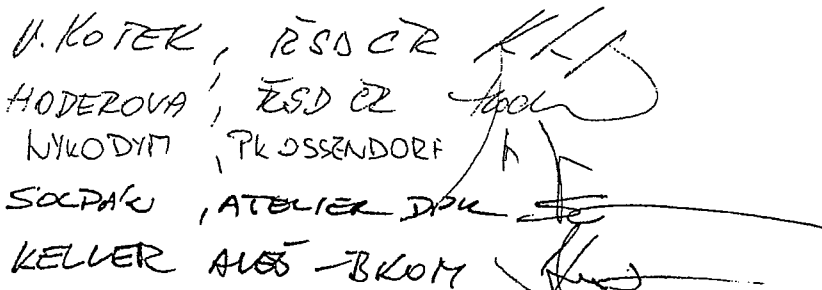 V. KOTEK, ŘSD ČR
HODEROVA, ŘSD ČR
NYKODYM, PK OSSENDORF
SOLDÁN, ATELIER DPK
KELLER ALEŠ - BKOM